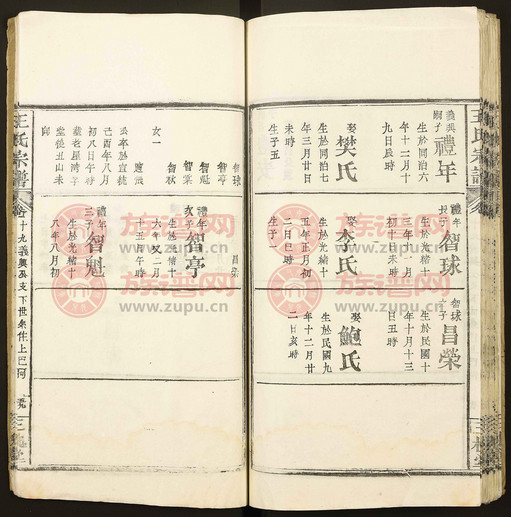 王氏宗譜
義興嗣子
禮年
生於同治六
年十二月十
九日辰時
娶
樊氏
生於同治七
年三月廿日
未時
生子五
智球
智亭
智魁
智棠
智秋
女一
適張
公卒於宣統
己酉年八月
初八日午時
葬老屋灣子
堂後丑山未
向
禮年長子
智球
生於光緒十
三年十一月
初十日未時
娶
李氏
生於光緒十
五年正月初
二日巳時
生子一
昌榮
禮年次子
智亭
生於光緒十
六年又二月
十五日午時
禮年三子
智魁
生於光緒十
八年八月初
智球之子
昌榮
生於民國十
年十月十三
日丑時
娶
鮑氏
生於民國九
年十二月廿
二日亥時
王氏宗譜
卷十九義興公支下世系住上巴河
三槐堂
族譜网
www.zupu.cn